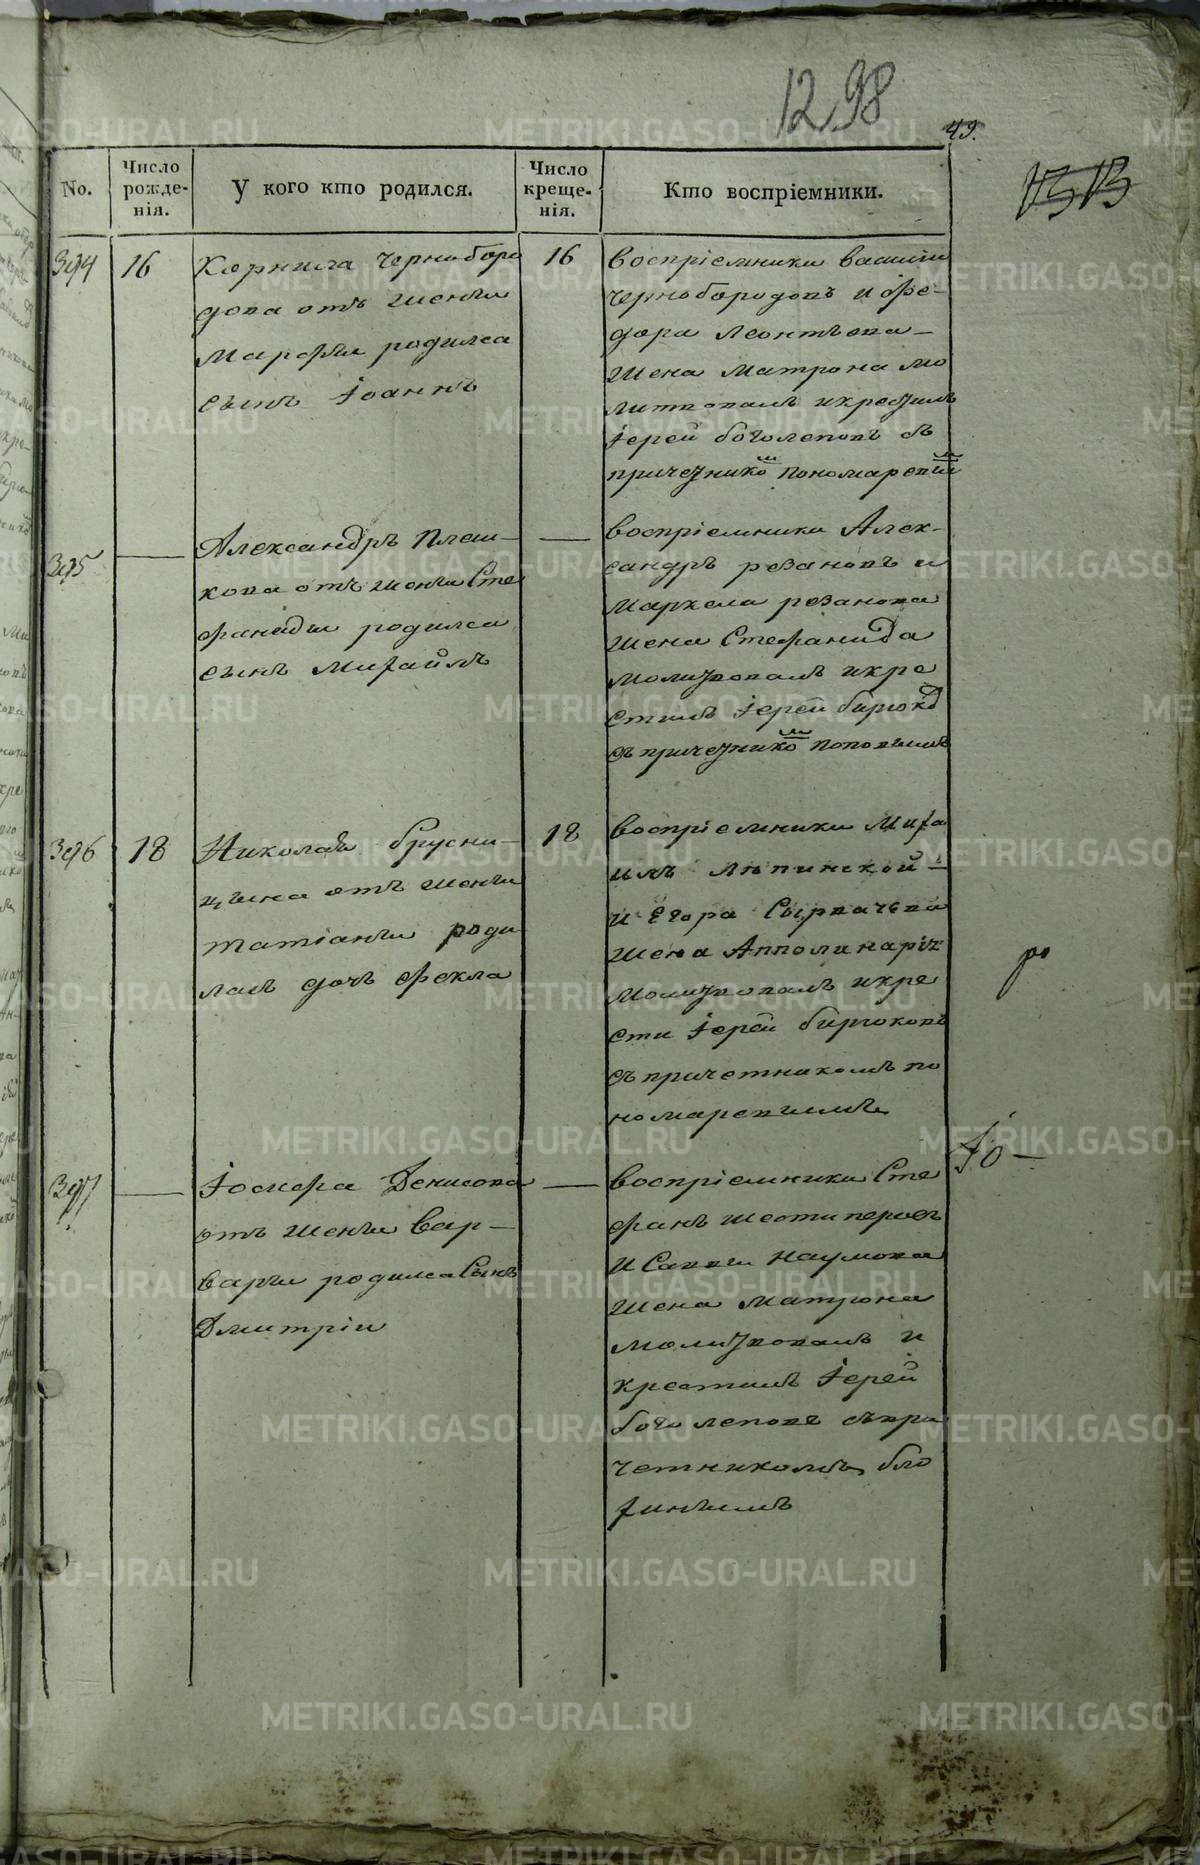 1298
49.
No.
Число рожде-нія.
У кого кто родился.
Число креще-нія.
Кто воспріемники.
394
16
Корнила Чернаборо
дова отъ жены
Марфы родился
сынъ Іоаннъ
16
воспріемники василій
Чернобородовъ и фе-
дора леонтьева
жена Матрона мо
литвовалъ и крестилъ
Іерей боголеповъ съ
причетникомъ пономаревым
395
Александръ Плеш-
кова отъ жены Сте
фаниды родился
сынъ Михайлъ
воспріемники Алек-
сандръ резановъ и
Маркела резанова
жена Стефанида
молитвовалъ и кре
стилъ Іерей бирюков
съ причетником поповымъ
396
18
Николая брусни-
цына отъ жены
татіаны роди
лась дочь фекла
18
воспріемники Миха
илъ ляпинской
и Егора Сырвачева
жена Апполинарія
молитвовалъ и кре
сти Іерей бирюковъ
съ причетникомъ по
номаревымъ
397
Іосифа Денисова
отъ жены вар-
вары родился Сынъ
Дмитріи
воспріемники Сте
фанъ шестиперовъ
и Саввы Наумова
жена Матрона
молитвовалъ и
крестилъ Іерей
боголеповъ съ при
четникомъ бло
хинымъ
METRIKI.GASO-URAL.RU